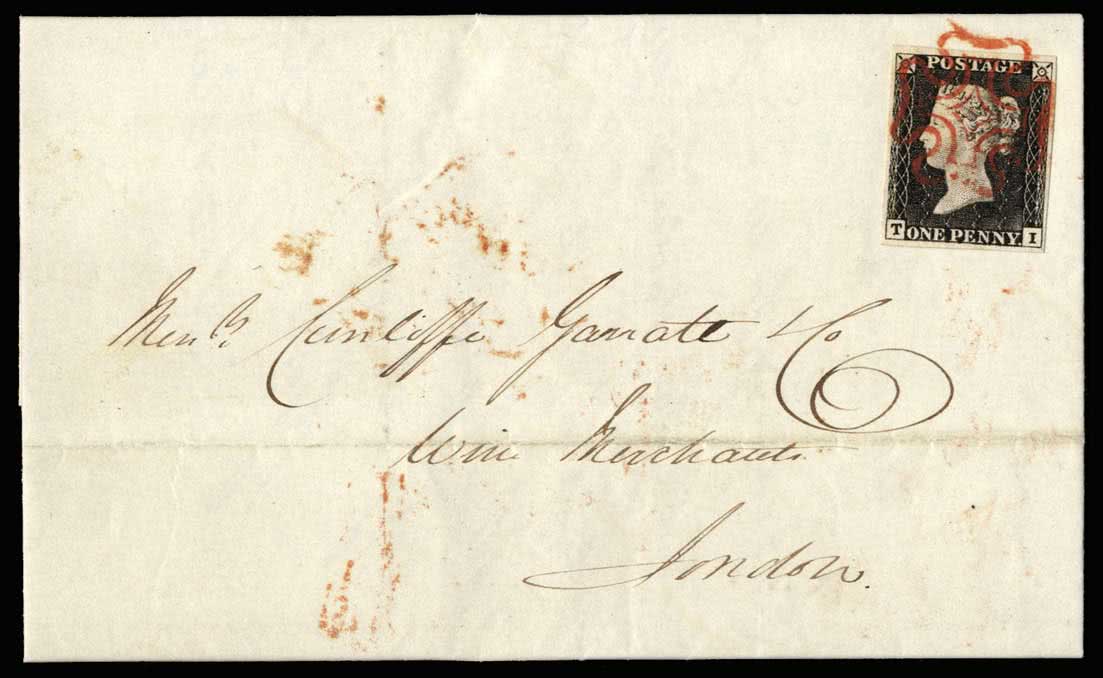 POSTAGE
T ONE PENNY I
Messrs. Cunliffe Garratt & Co
Wine Merchants
London.